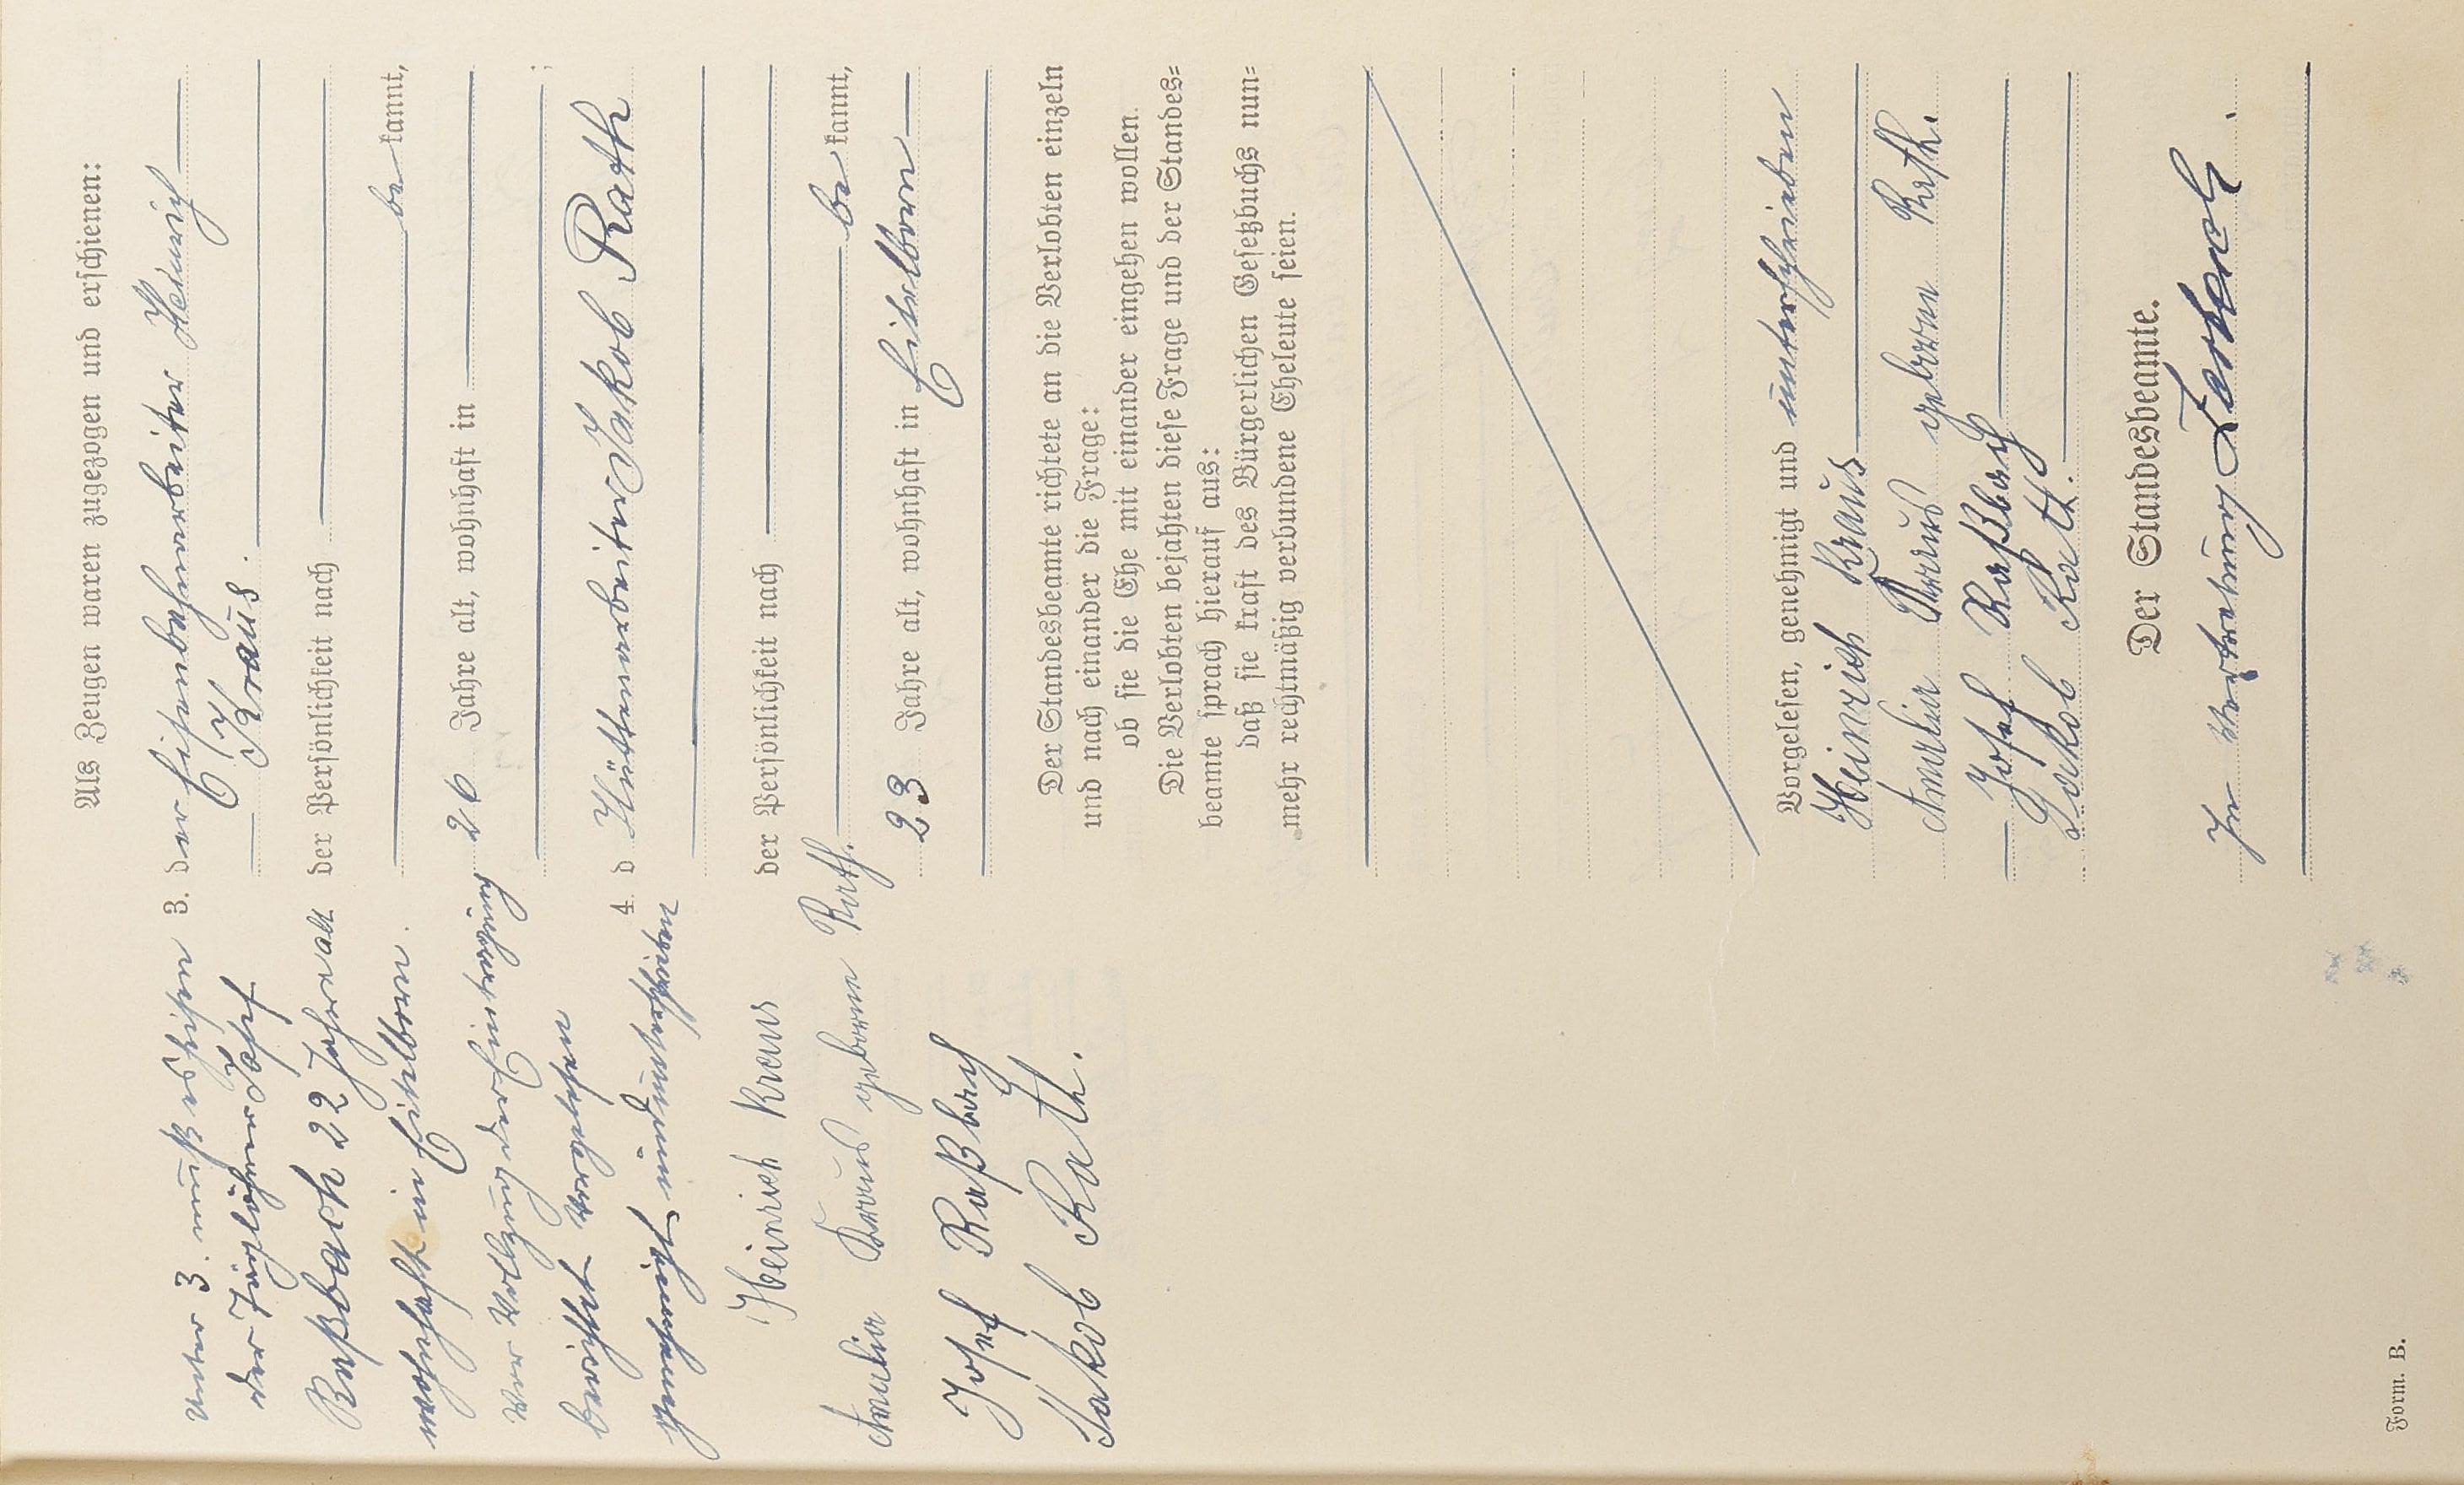 Als Zeugen waren zugezogen und erschienen:
3. der Eisenbahnarbeiter Heinrich
Kraus.
der Persönlichkeit nach
bekannt,
26 Jahre alt, wohnhaft in
4. d Hüttenarbeiter Jakob Rath
der Persönlichkeit nach
bekannt,
23 Jahre alt, wohnhaft in Eitelborn
Der Standesbeamte richtete an die Verlobten einzeln
und nach einander die Frage:
ob sie die Ehe mit einander eingehen wollen.
Die Verlobten bejahten diese Frage und der Standes=
beamte sprach hierauf aus:
daß sie kraft des Bürgerlichen Gesetzbuchs nun=
mehr rechtmäßig verbundene Eheleute seien.
Vorgelesen, genehmigt und unterschrieben
Heinrich Kraus
Amalia Kraus geborne Rath.
Josef Raßbach
Jakob Rath.
Der Standesbeamte.
In Vertretung
unter 3. muß es heißen
der Taglöhner Josef
Raßbach 22 Jahre alt
wohnhaft in Eitelborn.
Vor
genehmigt und unterschrieben
Heinrich Kraus
Amalia Kraus geborne Rath.
Josef Raßbach
Jakob Rath.
Form. B.